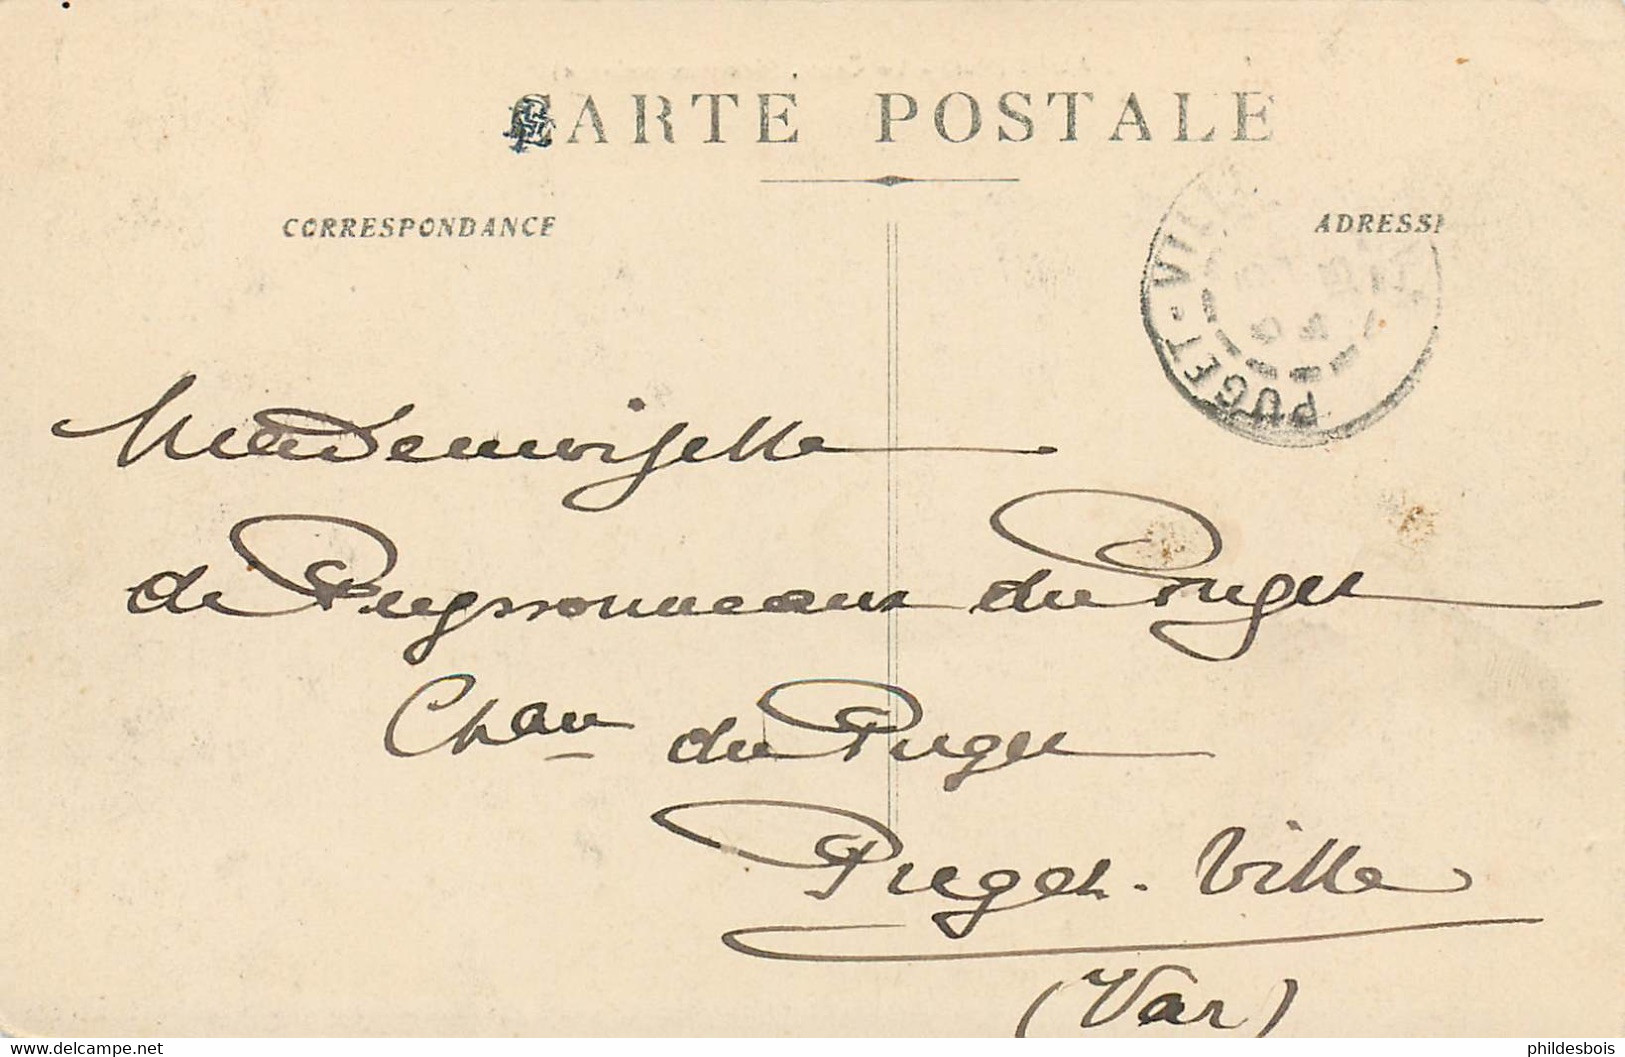 CARTE POSTALE
CORRESPONDANCE
ADRESSE
PUGET-VILLE
Mademoiselle
de Peyssonneaux du Puget
Chau du Puget
Puget-Ville
(Var)
phildesbois